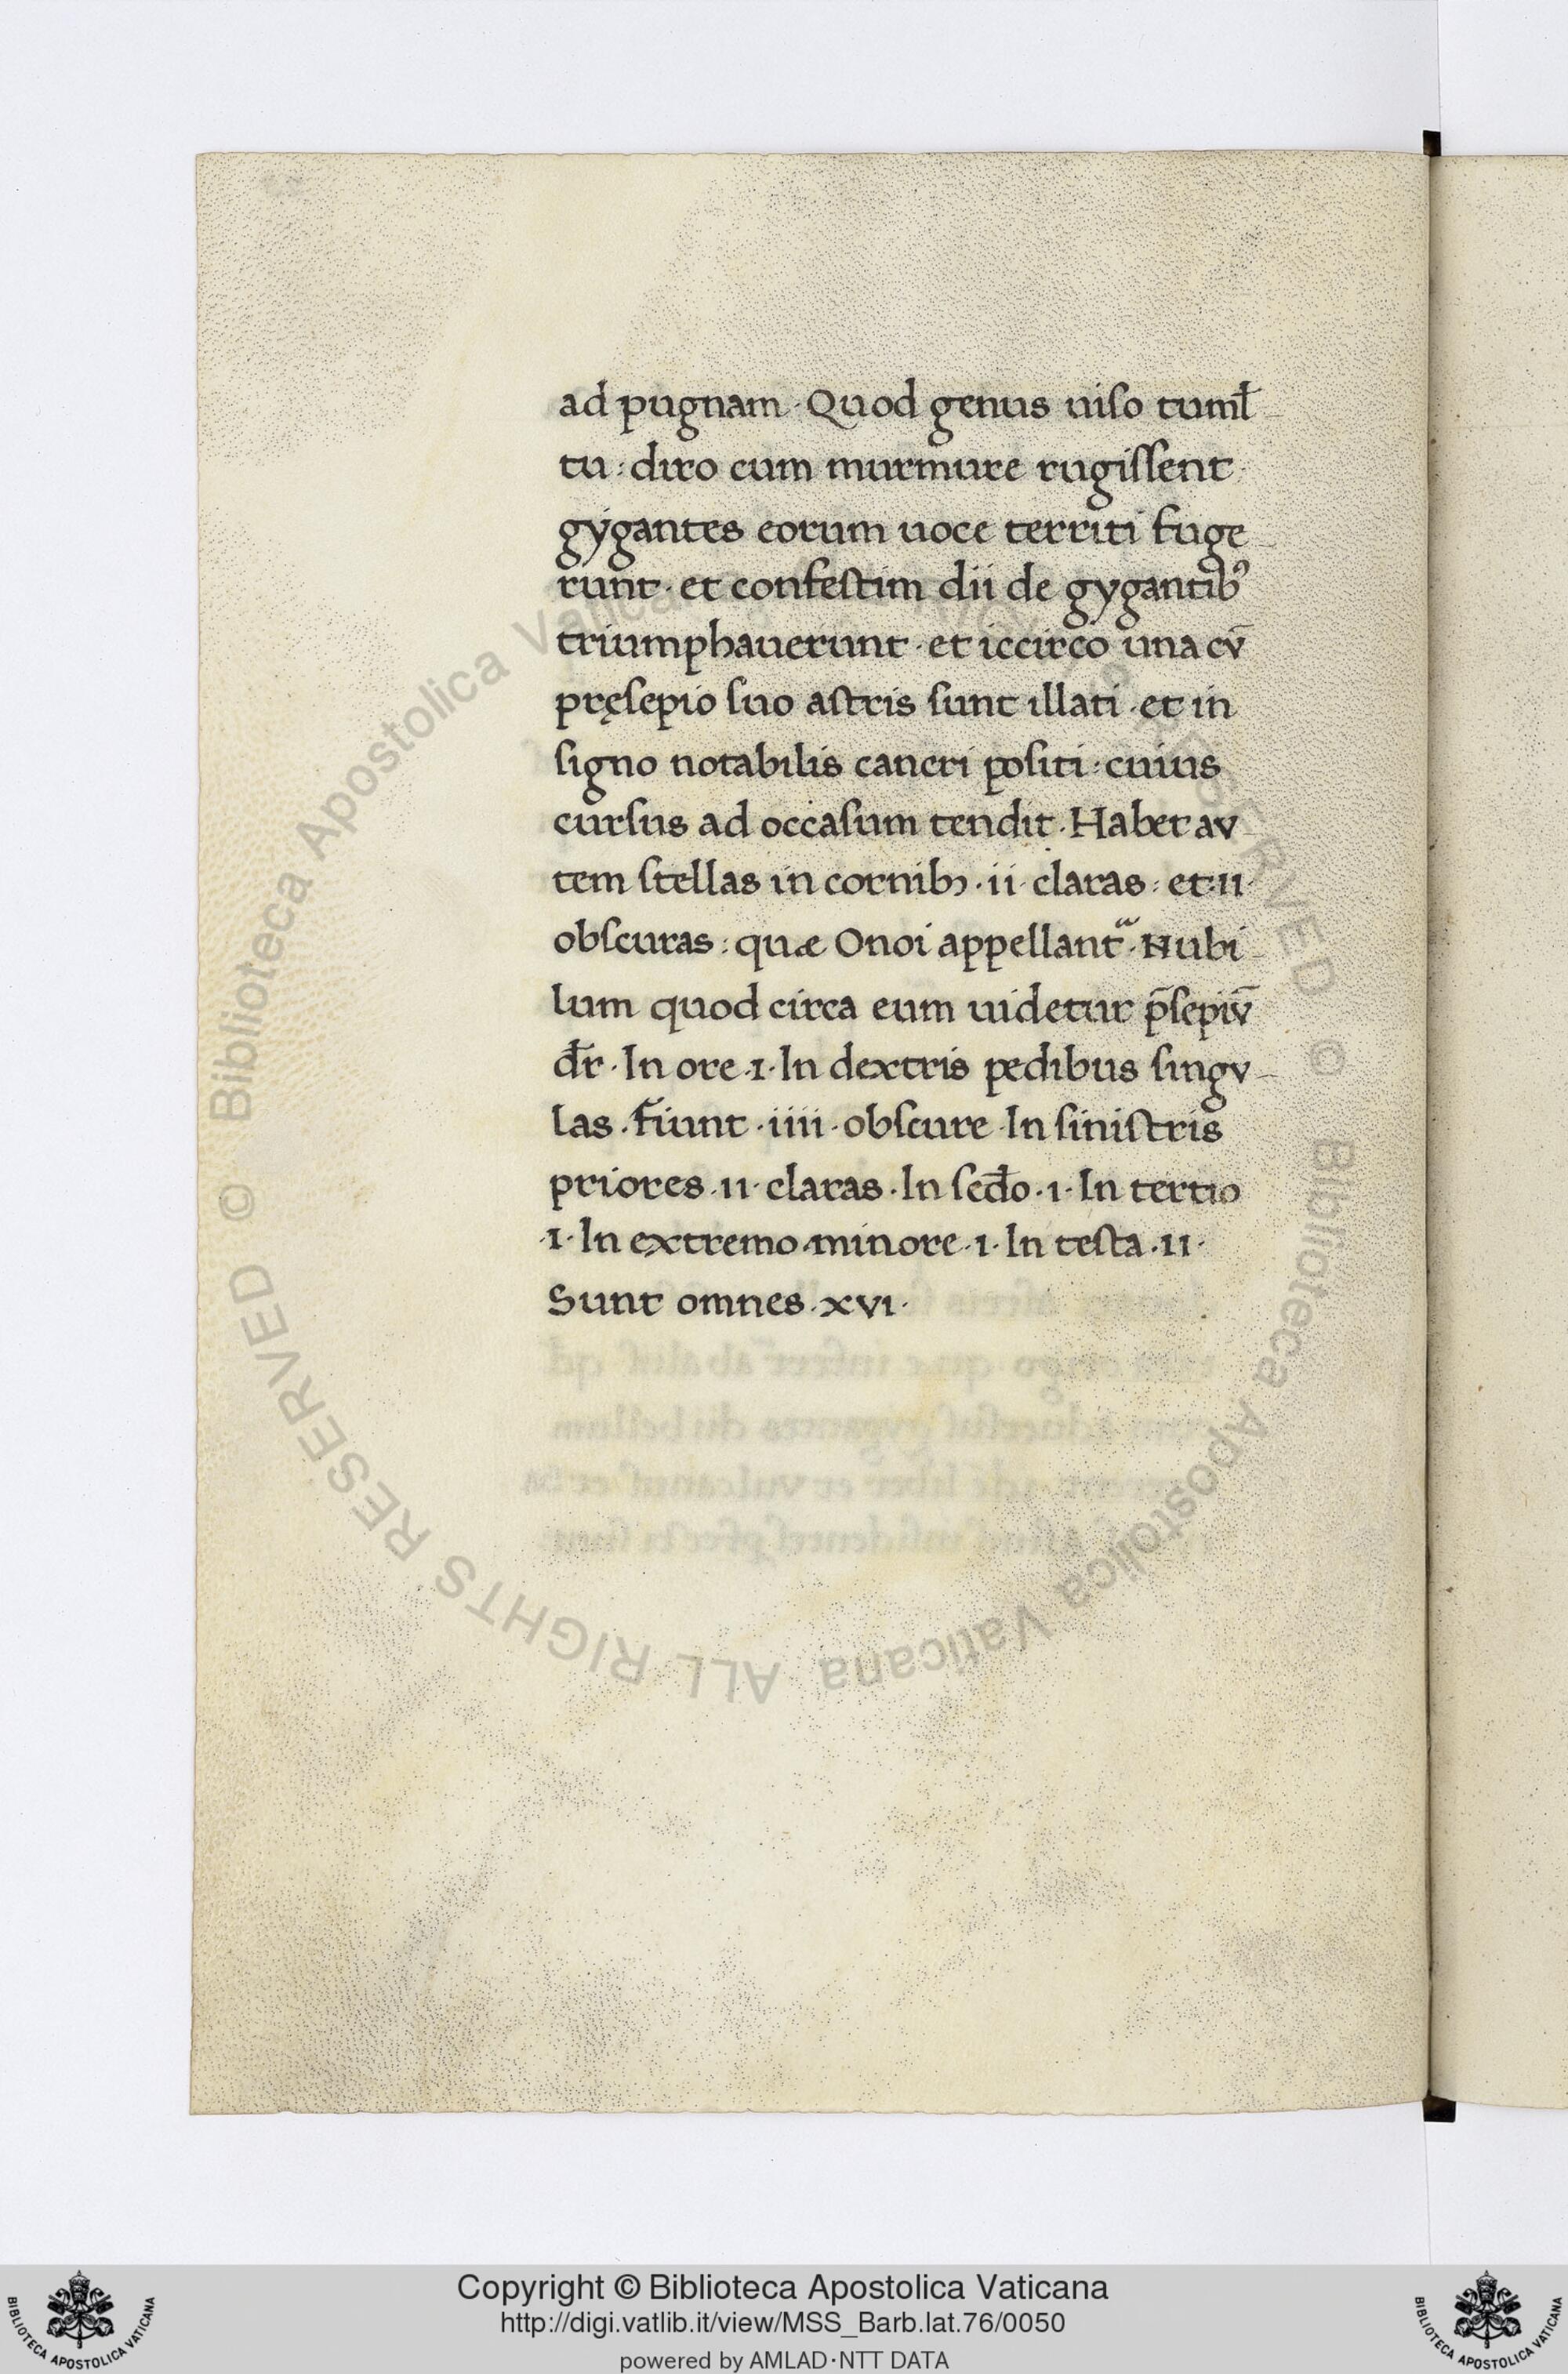 ad pugnam · Quod genus uiſo tuml̄
tu : diro cum murmure rugiſſent
gẏgantes eorum uoce territi fuge
runt · et confeſtim dii de gygantibꝰ
triumphauerunt · et iccirco una cv̄
pręſepio ſuo aſtris ſunt illati · et in
ſigno notabilis cancri poſiti : cuius
curſus ad occaſum tendit · Habet av
tem ſtellas in cornibꝫ · ii · claras : et · ii ·
obſcuras : quæ Onoi appellant᷑ · Nubi
lum quod circa eum uidetur p̄ſepiv̄
dr̄ · In ore · i · In dextris pedibus ſingv-
las · fiunt · iiii · obſcure · In ſiniſtris
priores · ii · claras · In ſcd̄o · i · In tertio
· i · In extremo · minore · i · In teſta · ii ·
Sunt omnes · xvi ·
© Biblioteca Apostolica Vaticana ALL RIGHTS RESERVED © Biblioteca Apostolica Vaticana ALL RIGHTS RESERVED
Copyright © Biblioteca Apostolica Vaticana
http://digi.vatlib.it/view/MSS_Barb.lat.76/0050
powered by AMLAD·NTT DATA
BIBLIOTECA APOSTOLICA VATICANA
BIBLIOTECA APOSTOLICA VATICANA